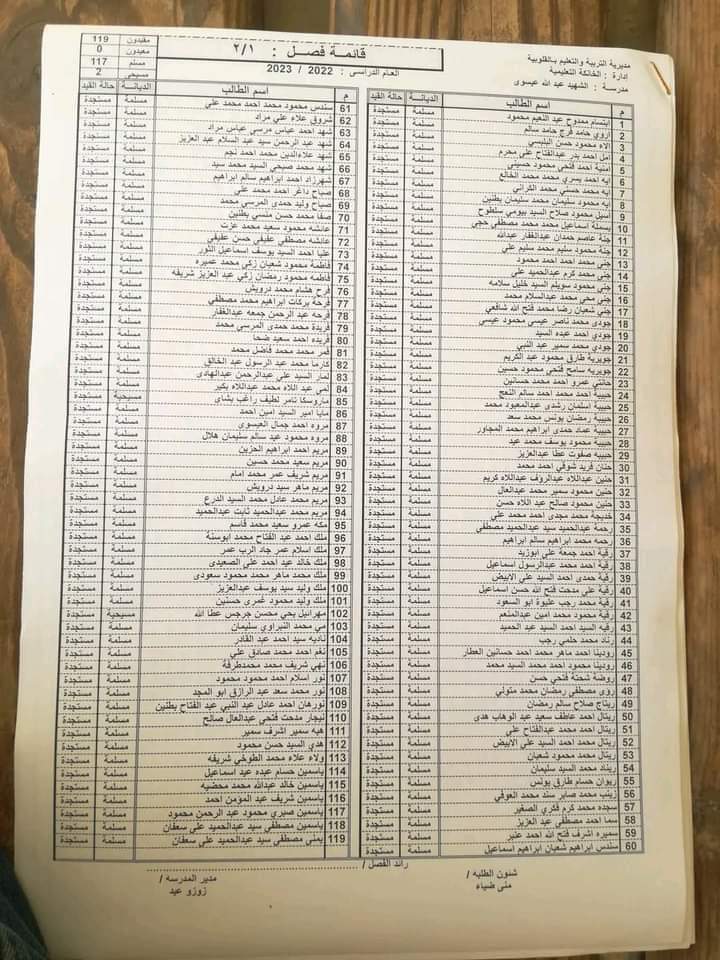 مديرية التربية والتعليم بالقلوبية
ادارة : الخانكة التعليمية
مدرسة : الشهيد عبد الله عيسوى
قائمة فصل : ٢/١
العام الدراسى : 2022 / 2023
مقيدون 119
معيدون 0
مسلم 117
مسيحى 2
م اسم الطالب الديانة حالة القيد
1 ابتسام ممدوح عبد النعيم محمود مسلمة مستجدة
2 اروي حامد فرج حامد سالم مسلمة مستجدة
3 الاء محمود حسن البليسي مسلمة مستجدة
4 امل احمد بدر عبدالفتاح علي محرم مسلمة مستجدة
5 امنية احمد فتحي محمود حسيني مسلمة مستجدة
6 ايه احمد يسري محمد محمد الخالع مسلمة مستجدة
7 ايه محمد حسني محمد الكراني مسلمة مستجدة
8 ايه محمود سليمان محمد سليمان بطنين مسلمة مستجدة
9 اسيل محمود صلاح السيد بيومي سلطوح مسلمة مستجدة
10 بسملة اسماعيل محمد محمد مصطفي حجي مسلمة مستجدة
11 جنة عاصم حمدان عبدالغفار عبدالله مسلمة مستجدة
12 جنة محمود سليم محمد سليم علي مسلمة مستجدة
13 جني محمد احمد احمد محمود مسلمة مستجدة
14 جني محمد كرم عبدالحميد علي مسلمة مستجدة
15 جني محمود سويلم السيد خليل سلامه مسلمة مستجدة
16 جني محي محمد عبدالسلام محمد مسلمة مستجدة
17 جني شعبان رضا محمد فتح الله شافعي مسلمة مستجدة
18 جودى محمد ناصر عيسى محمود عيسى مسلمة مستجدة
19 جودي احمد عبده السيد مسلمة مستجدة
20 جودي محمد سمير عبد النبي مسلمة مستجدة
21 جويرية طارق محمود عبد الكريم مسلمة مستجدة
22 جويرية سامح فتحي محمود حسين مسلمة مستجدة
23 حانتي عمرو احمد محمد حسانين مسلمة مستجدة
24 حبيبة احمد محمد احمد سالم النعج مسلمة مستجدة
25 حبيبة اسلمان رشدى عبدالمعبود محمد مسلمة مستجدة
26 حبيبة رمضان يونس محمد سعد مسلمة مستجدة
27 حبيبة عماد حمدى ابراهيم محمد المجاور مسلمة مستجدة
28 حبيبة محمود يوسف محمد عيد مسلمة مستجدة
29 حبيبه صفوت عطا عبدالعزيز مسلمة مستجدة
30 حنان فريد شوقي احمد محمد مسلمة مستجدة
31 حنين عبداللاه عبدالرؤف عبداللاه كريم مسلمة مستجدة
32 حنين محمود سمير محمد عبدالعال مسلمة مستجدة
33 حنين محمود صالح عبد اللاه حسن مسلمة مستجدة
34 خديجة محمد مجدى احمد محمد علي مسلمة مستجدة
35 رحمة عبدالحميد سيد عبدالحميد مصطفى مسلمة مستجدة
36 رحمه محمد ابراهيم سالم ابراهيم مسلمة مستجدة
37 رقية احمد جمعة علي ابوزيد مسلمة مستجدة
38 رقية احمد محمد عبدالرسول اسماعيل مسلمة مستجدة
39 رقية حمدى احمد السيد علي الابيض مسلمة مستجدة
40 رقية علي مدحت فتح الله حسن اسماعيل مسلمة مستجدة
41 رقية محمد رجب عليوة ابو السعود مسلمة مستجدة
42 رقية محمود محمد امين عبدالمنعم مسلمة مستجدة
43 رقيه السيد احمد السيد عبد الحميد مسلمة مستجدة
44 رناد محمد حلمي رجب مسلمة مستجدة
45 رودينا احمد ماهر محمد احمد حسانين العطار مسلمة مستجدة
46 رودينا محمود احمد محمد السيد محمد مسلمة مستجدة
47 روضة شحتة فتحي حسن مسلمة مستجدة
48 رؤى مصطفى رمضان محمد متولي مسلمة مستجدة
49 ريتاج صلاح سالم رمضان مسلمة مستجدة
50 ريتال احمد عاطف سعيد عبد الوهاب هدى مسلمة مستجدة
51 ريتال احمد محمد عبدالفتاح علي مسلمة مستجدة
52 ريتال محمد احمد السيد علي الابيض مسلمة مستجدة
53 ريتال محمد محمود شعبان مسلمة مستجدة
54 ريناد محمد السيد سليمان مسلمة مستجدة
55 ريوان حسام طارق يونس مسلمة مستجدة
56 زينب محمد صابر سند محمد العوفي مسلمة مستجدة
57 سجده محمد كرم فكري الصغير مسلمة مستجدة
58 سما احمد مصطفي عبد العزيز مسلمة مستجدة
59 سميره اشرف فتح الله احمد عنبر مسلمة مستجدة
60 سندس ابراهيم شعبان ابراهيم اسماعيل مسلمة مستجدة
م اسم الطالب الديانة حالة القيد
61 سندس محمود محمد احمد محمد علي مسلمة مستجدة
62 شروق علاء علي مراد مسلمة مستجدة
63 شهد احمد عباس مرسى عباس مراد مسلمة مستجدة
64 شهد عبد الرحمن سيد عبد السلام عبد العزيز مسلمة مستجدة
65 شهد علاءالدين محمد احمد نجم مسلمة مستجدة
66 شهد محمد صبحي السيد محمد سيد مسلمة مستجدة
67 شهرزاد احمد ابراهيم سالم ابراهيم مسلمة مستجدة
68 صباح داغر احمد محمد علي مسلمة مستجدة
69 صباح وليد حمدى المرسى محمد مسلمة مستجدة
70 صفا محمد حسن منسي بطنين مسلمة مستجدة
71 عائشه محمود سعيد محمد عزت مسلمة مستجدة
72 عائشه مصطفى عفيفي حسن عفيفي مسلمة مستجدة
73 عليا احمد السيد يوسف اسماعيل النور مسلمة مستجدة
74 فاطمة محمود شعبان زكى محمد عميره مسلمة مستجدة
75 فاطمه محمود رمضان زكي عبد العزيز شريفه مسلمة مستجدة
76 فرح هشام محمد درويش مسلمة مستجدة
77 فرحة بركات ابراهيم محمد مصطفي مسلمة مستجدة
78 فرحه عبد الرحمن جمعه عبدالغفار مسلمة مستجدة
79 فريدة محمد حمدى المرسى محمد مسلمة مستجدة
80 فريده احمد سعيد ضحا مسلمة مستجدة
81 قمر محمد محمد فاضل محمد مسلمة مستجدة
82 كارما محمد عبد الرسول عبد الخالق مسلمة مستجدة
83 لمار السيد علي عبدالرحمن عبدالهادى مسلمة مستجدة
84 لمي عبد اللاه محمد عبداللاه بكير مسلمة مستجدة
85 ماروسكا تامر لطيف راغب بشاى مسيحية مستجدة
86 مايا امير السيد امين احمد مسلمة مستجدة
87 مروه احمد جمال العيسوى مسلمة مستجدة
88 مروه محمود عيد سالم سليمان هلال مسلمة مستجدة
89 مريم احمد ابراهيم الحزين مسلمة مستجدة
90 مريم سعيد محمد حسين مسلمة مستجدة
91 مريم شريف عمر محمد امام مسلمة مستجدة
92 مريم ماهر سيد درويش مسلمة مستجدة
93 مريم محمد عادل محمد السيد الدرع مسلمة مستجدة
94 مريم محمد عبدالحميد ثابت عبدالحميد مسلمة مستجدة
95 مكه عمرو سعيد محمد قاسم مسلمة مستجدة
96 ملك احمد عبد الفتاح محمد ابوستة مسلمة مستجدة
97 ملك اسلام عمر جاد الرب عمر مسلمة مستجدة
98 ملك خالد عيد احمد علي الصعيدى مسلمة مستجدة
99 ملك محمد ماهر محمد محمود سعودى مسلمة مستجدة
100 ملك وليد سيد يوسف عبدالعزيز مسلمة مستجدة
101 ملك وليد محمود غمرى حسنين مسلمة مستجدة
102 مهرائيل يحي محسن جرجس عطا الله مسيحية مستجدة
103 مي محمد النبراوي سليمان مسلمة مستجدة
104 نادية سيد احمد عبد القادر مسلمة مستجدة
105 نغم احمد محمد صادق علي مسلمة مستجدة
106 نهي شريف محمد محمدطرفة مسلمة مستجدة
107 نور اسلام احمد محمود محمود مسلمة مستجدة
108 نور محمد سعد عبد الرازق ابو المجد مسلمة مستجدة
109 نورهان احمد عادل عبد النبي عبد الفتاح بطنين مسلمة مستجدة
110 نيجار مدحت فتحى عبدالعال صالح مسلمة مستجدة
111 هبه سمير اشرف سمير مسلمة مستجدة
112 هدي السيد حسن محمود مسلمة مستجدة
113 ولاء علاء محمد الطوخي شريفه مسلمة مستجدة
114 ياسمين حسام عبده عيد اسماعيل مسلمة مستجدة
115 ياسمين خالد عبدالله محمد محضيه مسلمة مستجدة
116 ياسمين شريف عبد المؤمن احمد مسلمة مستجدة
117 ياسمين صبري محمود عبد الرحمن محمود مسلمة مستجدة
118 ياسمين مصطفي سيد عبدالحميد علي سعفان مسلمة مستجدة
119 يمني مصطفي سيد عبدالحميد علي سعفان مسلمة مستجدة
شئون الطلبه /
منى ضياء
رائد الفصل /
مدير المدرسه /
زوزو عيد